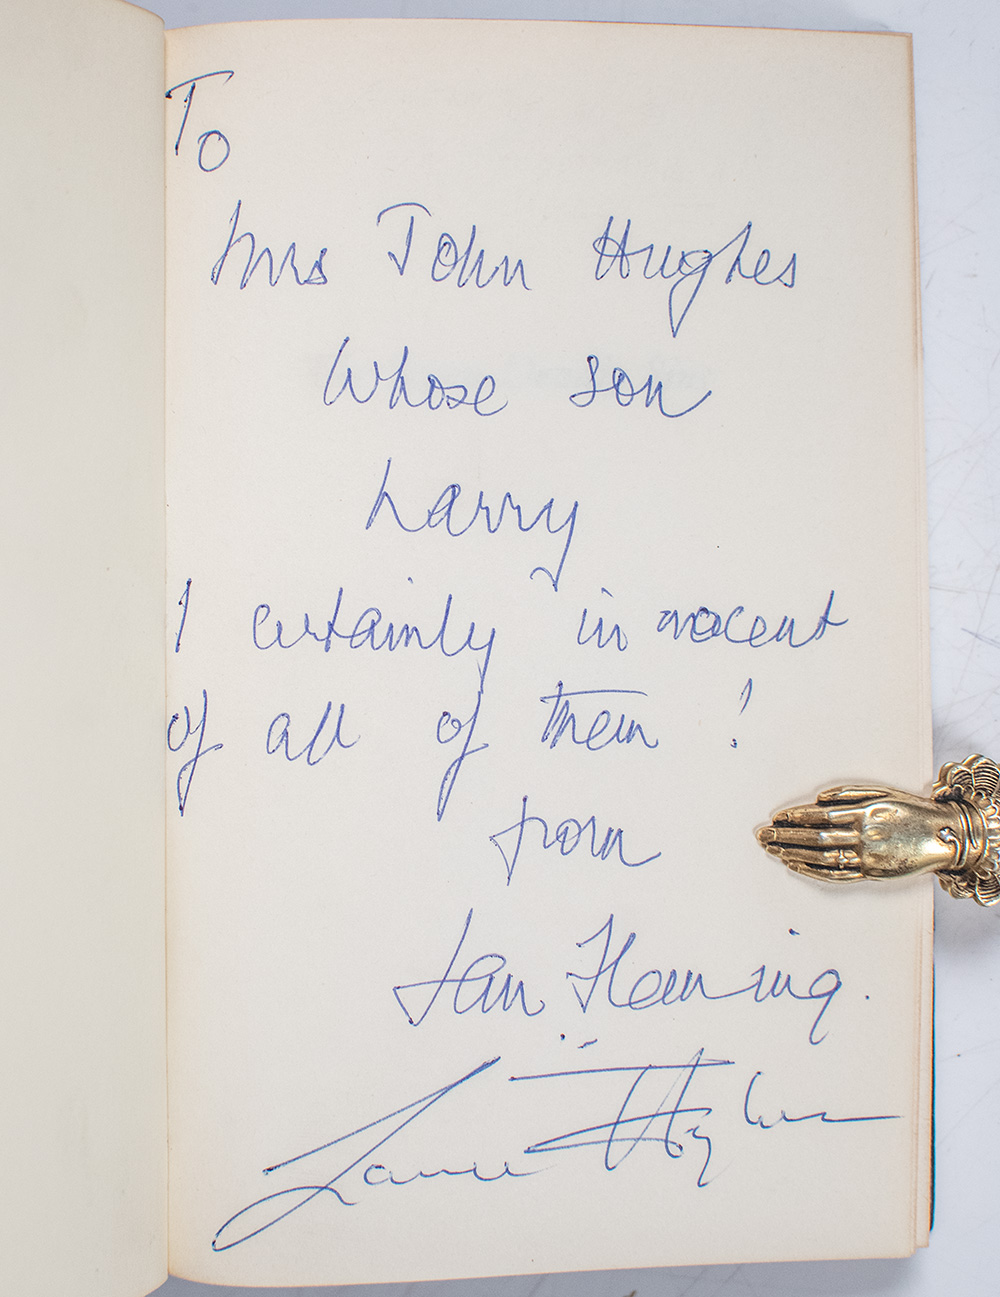 To
Mrs John Hughes
Whose son
Larry
I certainly innocent
of all of them !
from
Ian Fleming.
Hughes